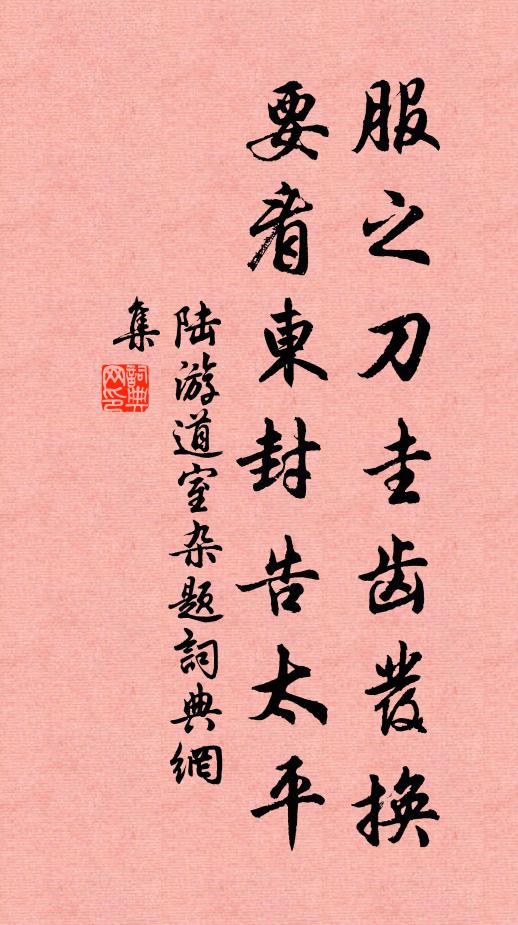 服之刀圭齿發换
要看東封告太平
陆游道室杂题詞典網
集
詞典网印